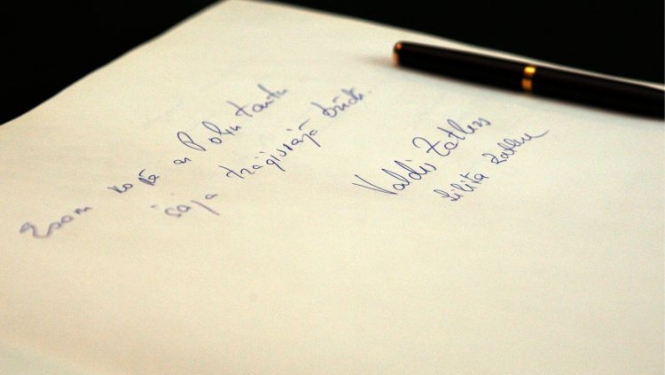 Esam kopā ar Poļu tautu
šajā traģiskajā brīdī.
Valdis Zatlers
Lilita Zatlere